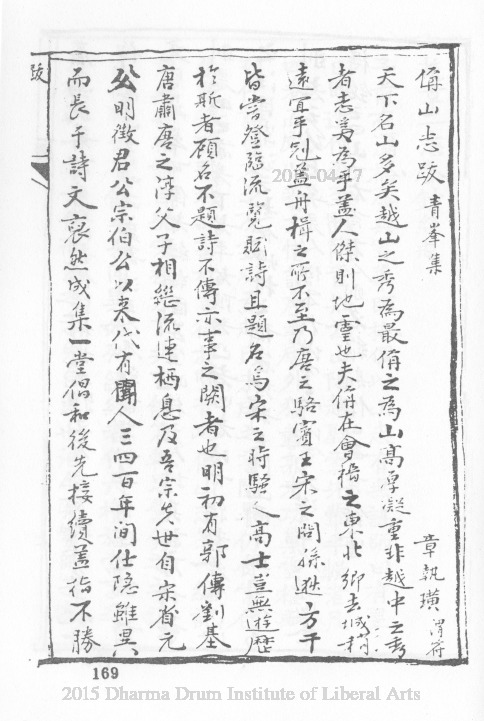 偁山志跋 青峯集
章執璜 渭符
天下名山多矣越山之秀為最偁之為山高厚凝重非越中之秀
者志奚為乎蓋人傑則地靈也夫偁在會稽之東北鄉去城稍
遠宜乎冠蓋舟楫之所不至乃唐之駱賓王宋之間孫逖方干
皆嘗登臨流覽賦詩且題名焉宋之時騷人高士豈無遊歷
於斯者顧名不題詩不傳亦事之闕者也明初有郭傳劉基
唐肅唐之淳父子相繼流連栖息及吾宗先世自宋省元
公明徵君公宗伯公以來代有聞人三四百年间仕隐雖異
而長于詩文裒然成集一堂倡和後先接續蓋指不勝
跋
169
2015-04-17
2015 Dharma Drum Institute of Liberal Arts